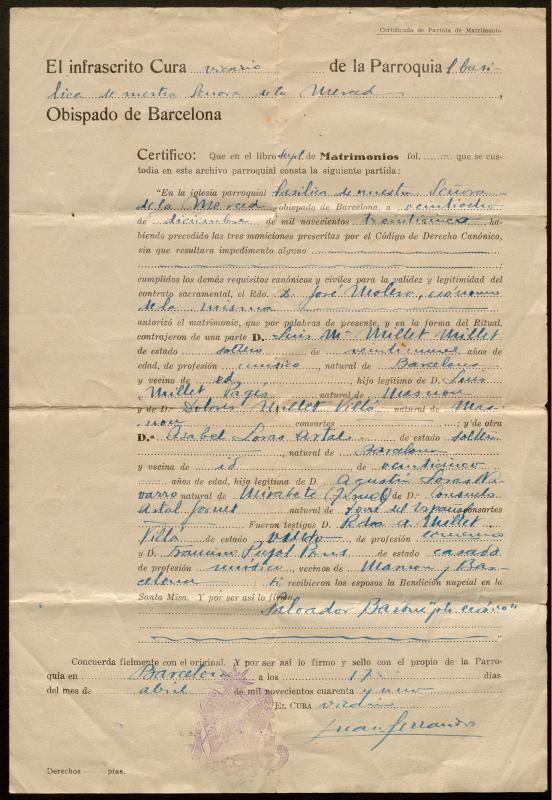 Certificado de Partida de Matrimonio
El infrascrito Cura vicario de la Parroquia Basí-
lica de nuestra Señora de la Merced,
Obispado de Barcelona
Certifico: Que en el libro sept. de Matrimonios fol. que se cus-
todia en este archivo parroquial consta la siguiente partida:
"En la iglesia parroquial Basílica de nuestra Señora
de la Merced, obispado de Barcelona, a veintiocho
de diciembre de mil novecientos ha-
biendo precedido las tres moniciones prescritas por el Código de Derecho Canónico,
sin que resultara impedimento alguno
cumplidos los demás requisitos canónicos y civiles para la validez y legitimidad del
contrato sacramental, el Rdo. D. José Molero, ecónomo
de la misma
autorizó el matrimonio, que por palabras de presente, y en la forma del Ritual,
contrajeron de una parte D. Luis Mª Millet Millet
de estado soltero de veintinueve años de
edad, de profesión músico natural de Barcelona
y vecino de id. hijo legítimo de D. Luis
Millet Pagés natural de Masnou
y de D.ª Dolores Millet Villá natural de Mas-
nou consortes ; y de otra
D.ª Isabel Loras Artal de estado soltera
, natural de Barcelona
y vecina de id de veinticinco
años de edad, hija legítima de D. Agustín Loras Na-
varro natural de Mirabete (Teruel) de D.ª Consuelo
Artal natural de consortes
Fueron testigos D. A. Millet
Villá de estado de profesión comercio
y D. Francisco Pujol Pons de estado casado
de profesión músico, vecinos de Masnou y Bar-
celona ; sí recibieron los esposos la Bendición nupcial en la
Santa Misa. Y por ser así lo firmo
Salvador
Concuerda fielmente con el original. Y por ser así lo firmo y sello con el propio de la Parro-
quia en Barcelona a los 17 días
del mes de abril de mil novecientos cuarenta y uno
EL CURA vicario
Juan Ferrando
L. S.
Derechos ptas.